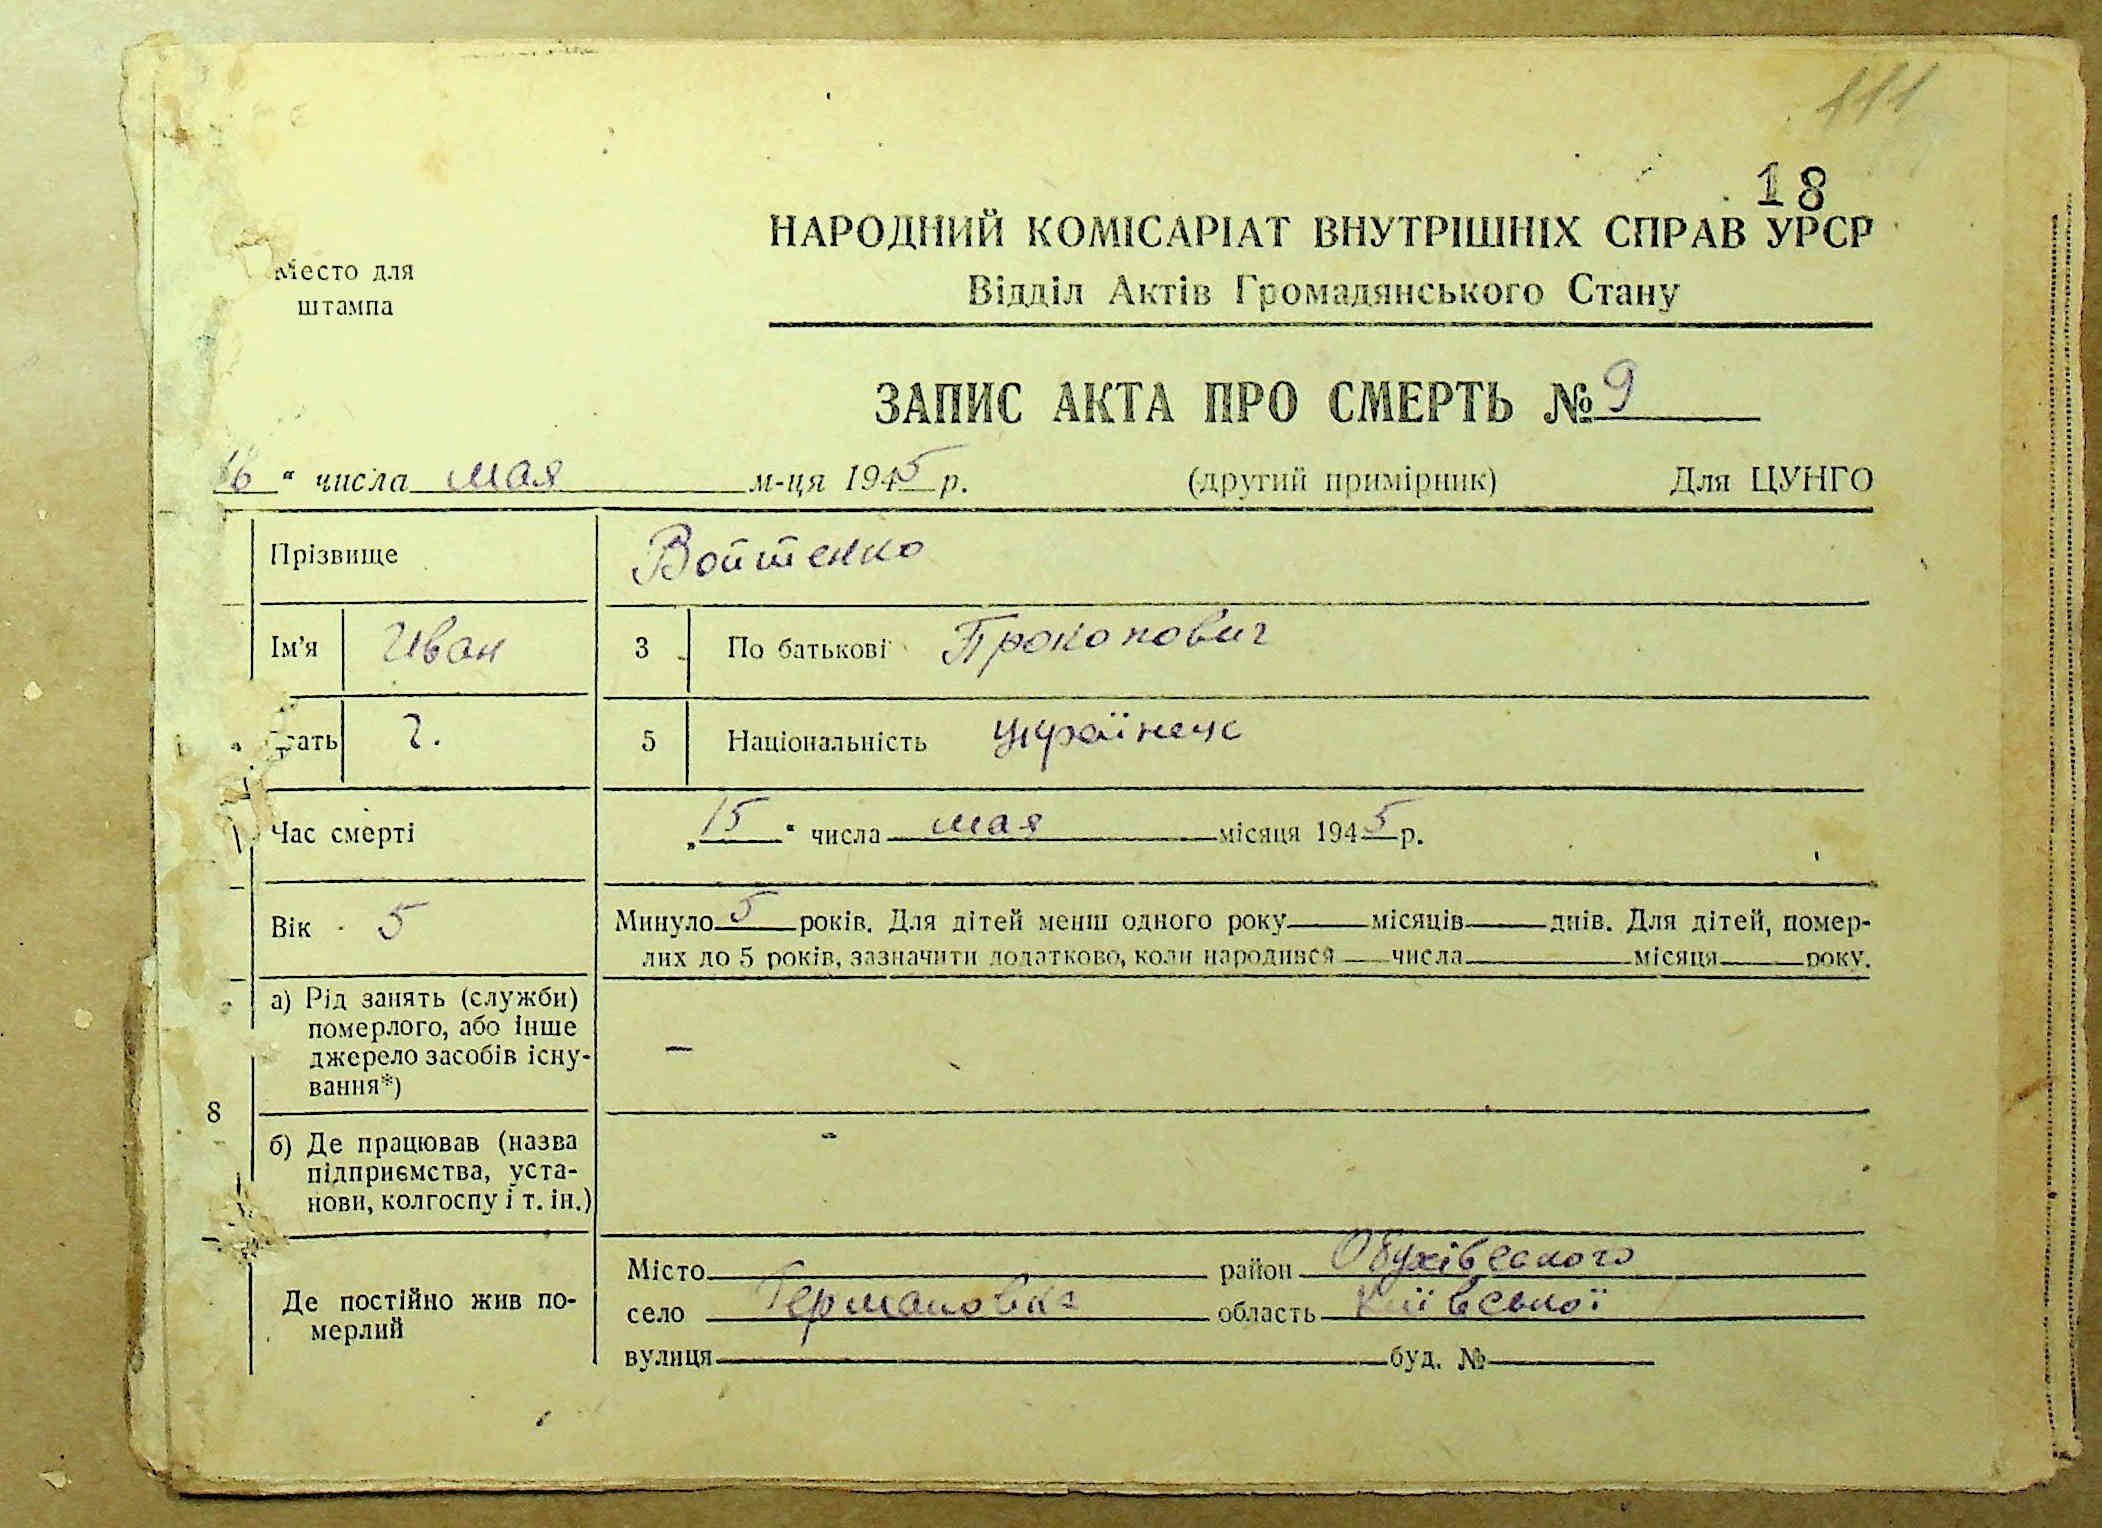 111
18
НАРОДНИЙ КОМІСАРІАТ ВНУТРІШНІХ СПРАВ УРСР
Место для
штампа
Відділ Актів Громадянського Стану
ЗАПИС АКТА ПРО СМЕРТЬ № 9
16 " числа мая м-ця 1945 р. (другий примірник) Для ЦУНГО
Прізвище Войтенко
Ім'я Иван 3 По батькові Прокопович
тать ч. 5 Національність українец
Час смерті „15" числа мая місяця 1945 р.
Вік 5 Минуло 5 років. Для дітей менш одного року місяців днів. Для дітей, помер-
лих до 5 років, зазначити додатково, коли народився числа місяця року.
8
а) Рід занять (служби)
померлого, або інше
джерело засобів існу-
вання*) –
б) Де працював (назва
підприємства, уста-
нови, колгоспу і т. ін.)
Де постійно жив по-
мерлий
Місто район Обухівського
село Германовка область Київської
вулиця буд. №